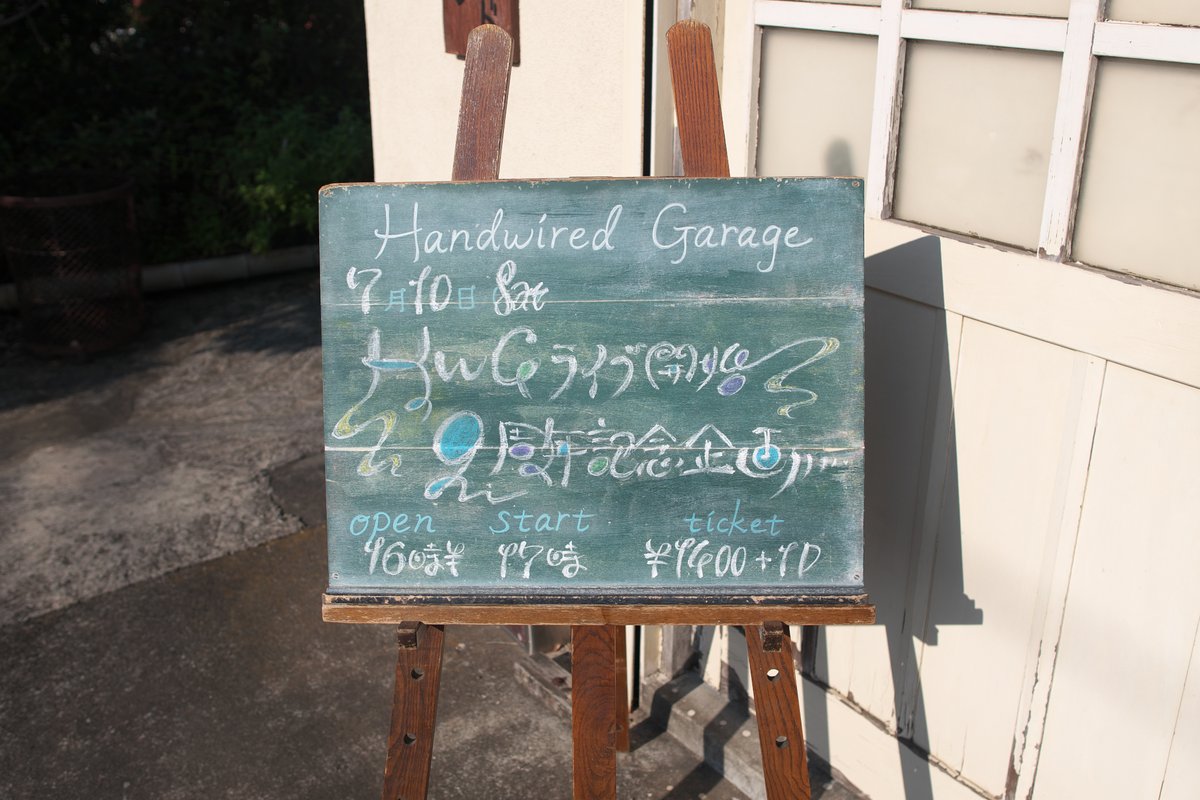 Handwired Garage
7月10日 Sat
HwGライブ
2周年記念企画
open start ticket
16時半 17時 ¥1600+1D